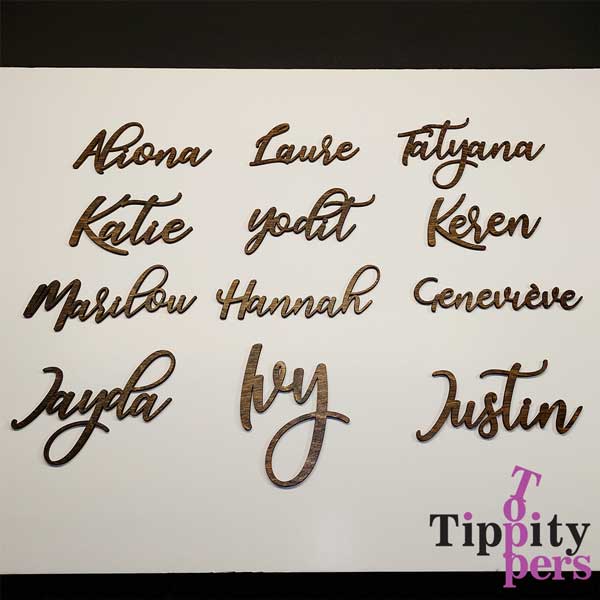 Aliona Laure Tatyana
Katie Yodit Keren
Marilou Hannah Geneviève
Jayda Ivy Justin
Tippity
Toppers